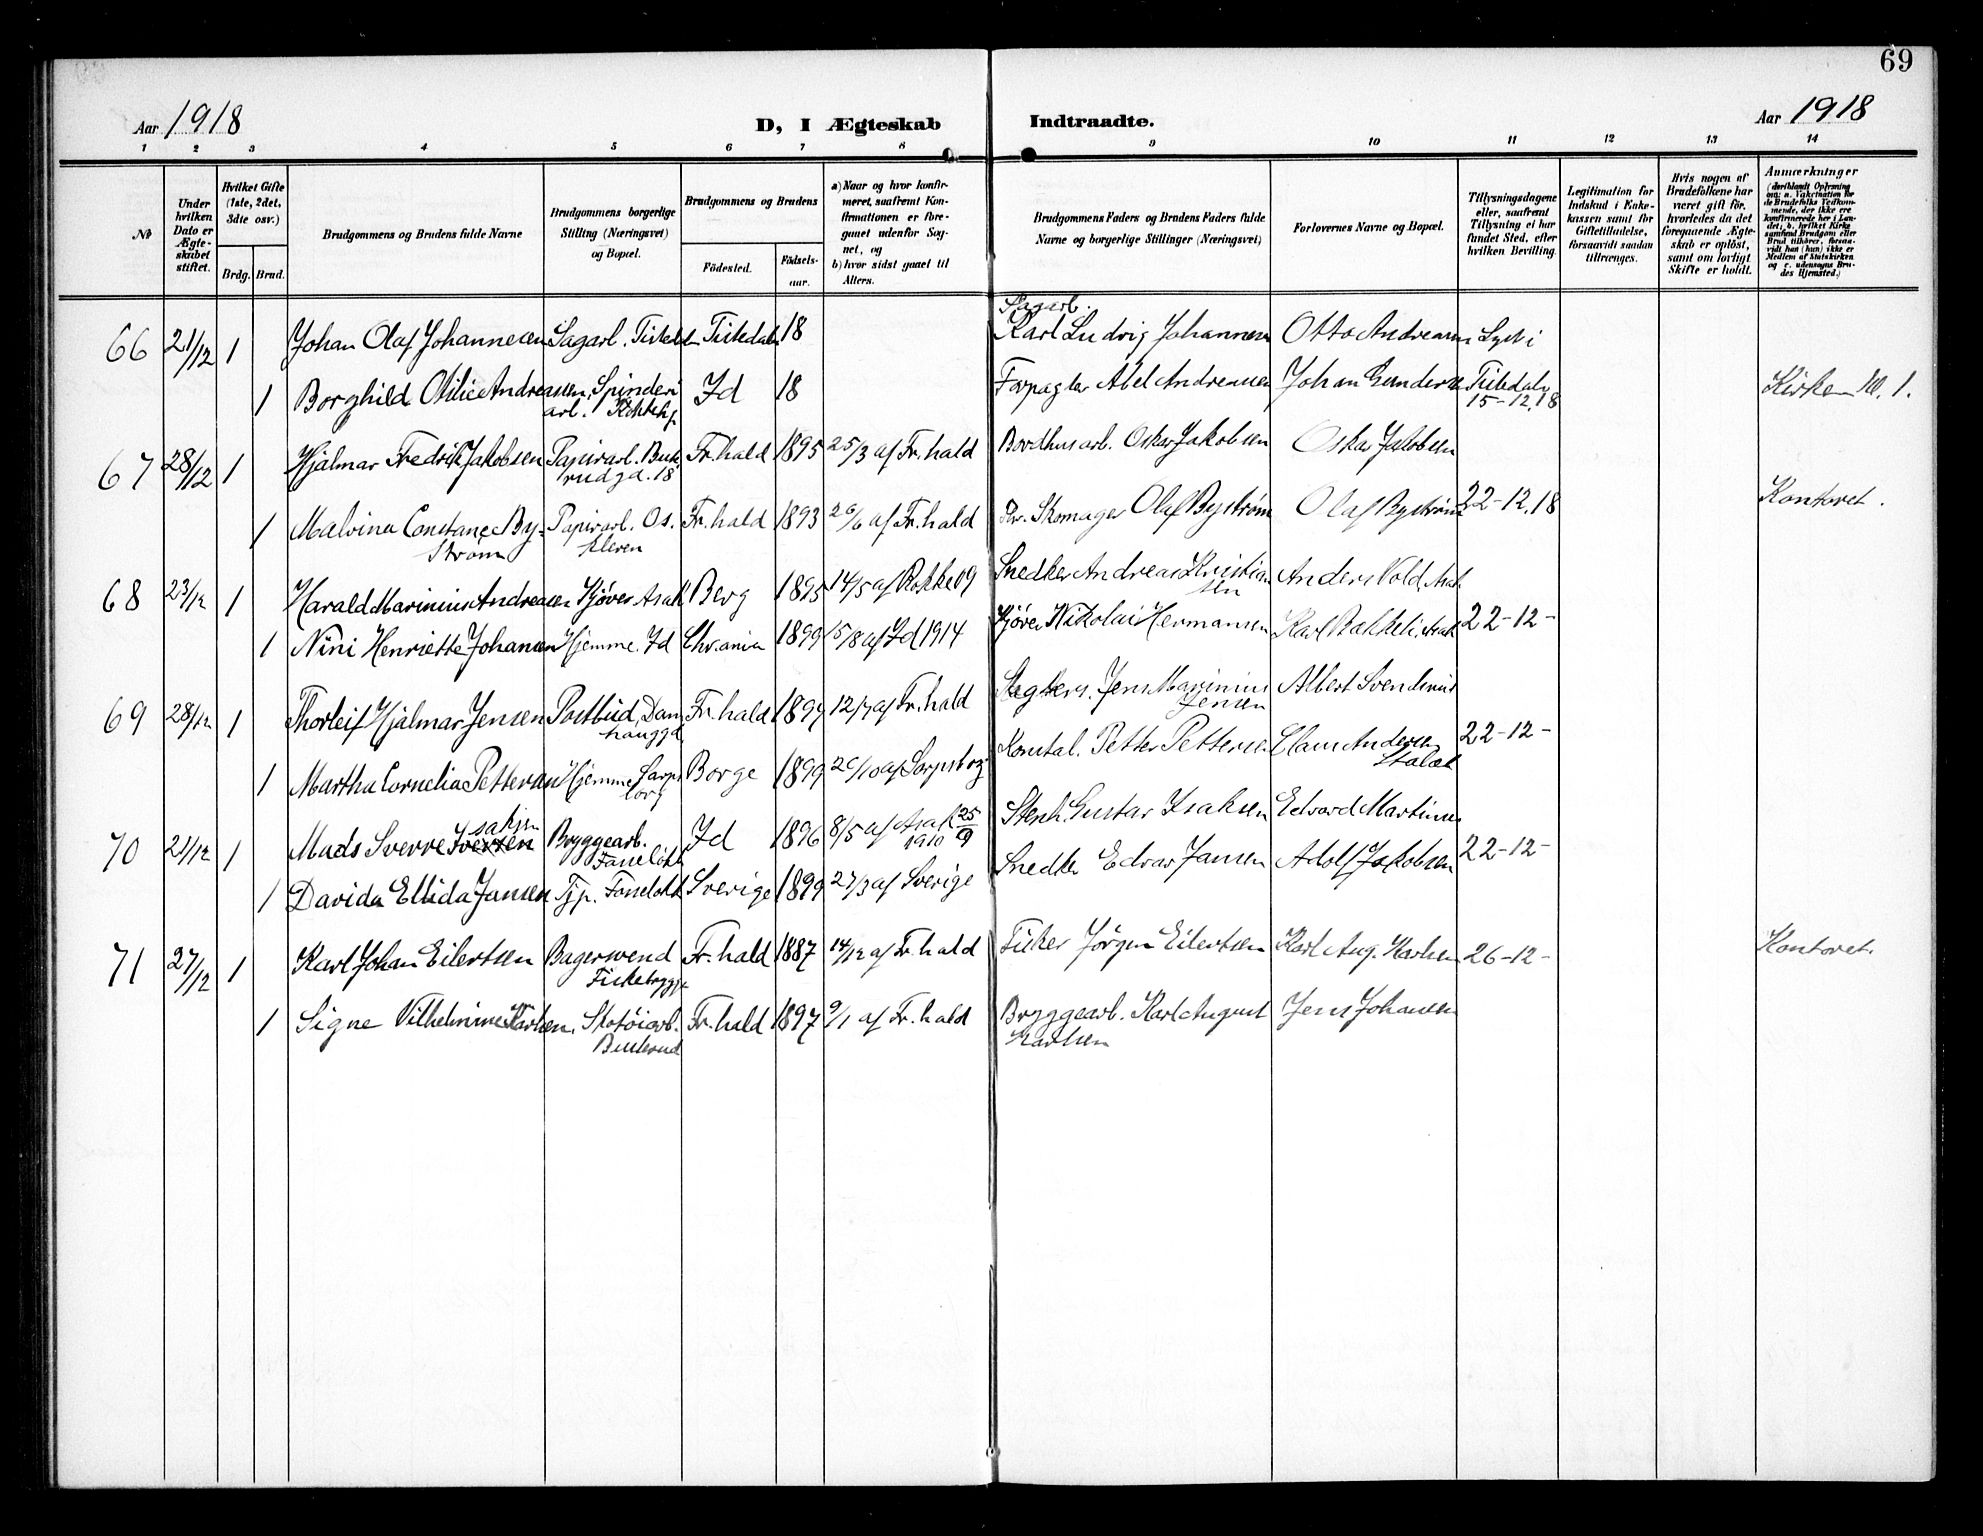 69
Aar 1918 D, I Ægteskab Indtraadte. Aar 1918
1 2 3 4 5 6 7 8 9 10 11 12 13 14
№
Under hvilken Dato er Ægteskabet stiftet.
Hvilket Gifte (1ste, 2det, 3die osv.)
Brdg. Brud.
Brudgommens og Brudens fulde Navne
Brudgommens borgerlige Stilling (Næringsvei) og Bopæl.
Brudgommens og Brudens
Födested. Födsels-aar.
a) Naar og hvor konfirmeret, saafremt Konfirmationen er foregaaet udenfor Sognet, og
b) hvor sidst gaaet til Alters.
Brudgommens Faders og Brudens Faders fulde Navne og borgerlige Stillinger (Næringsvei)
Forlovernes Navne og Bopæl.
Tillysningsdagene eller, saafremt Tillysning ei har fundet Sted, efter hvilken Bevilling.
Legitimation for Indskud i Enkekassen samt for Giftetilladelse, forsaavidt saadan tiltrænges.
Hvis nogen af Brudefolkene har været gift för, hvorledes da det foregaaende Ægteskab er oplöst, samt om lovligt Skifte er holdt.
Anmærkninger
(deriblandt Oplysning om: a. Vakcination for de Brudefolks Vedkommende, der ikke ere konfirmerede her i Landet; b. hvilket Kirkesamfund Brudgom eller Brud tilhörer, forsaavidt han (hun) ikke er Medlem af Statskirken og c. udensogns Brudes Hjemsted.)
Sagarb.
66 21/12 1 Johan Olaf Johannesen Sagarb. Tistedalen Tistedalen 18 Karl Ludvig Johannesen Otto Andreasen Lyst i
1 Borghild Otilie Andreasen, Spinderi Id 18 Forpagter Abel Andreassen Johan Gundersen Tistedalen Kirken kl. 1.
arb. 15-12.18
67 28/12 1 Hjalmar Fredrik Jakobsen Papirarb. Buk- Fr.hald 1895 25/3 af Fr.hald Bordhusarb. Oskar Jakobsen Oskar Jakobsen
rudgd. 18
1 Malvina Constance By- Papirarb. Os. Fr.hald 1893 26/6 af Fr.hald Skomager Olaf Byström Olaf Byström 22-12.18 Kontoret.
ström kleven
68 23/12 1 Harald Marinius Andreasen Kjörer Asak Berg 1895 14/5 af Rokke 09 Snedker Andreas Kristian- Anders Vold, Asak
sen
1 Nini Henriette Johansen Hjemme. Id Chr.ania 1899 15/8 af Id 1914 Kjörer Nikolai Hermansen Karl Bakkeli, Asak 22-12-
69 28/12 1 Thorleif Hjalmar Jensen Postbud, Dam- Fr.hald 1897 12/7 af Fr.hald Jens Marinius Albert Svendsen
hauggd. Jensen
1 Martha Cornelia Pettersen Hjemme Sarps- Borge 1899 26/10 af Sarpsborg Petter Pettersen Claus Andersen 22-12-
borg
saksen
70 21/12 1 Mads Sverre Iversen Bryggearb. Id 1896 8/5 af Asak 25/9 Stenh. Gustav Isaksen Edvard Martinsen
1910
1 Davida Ellida Jansen Tjp. Sverige 1899 27/3 af Sverige Snedker Edvar Jansen Adolf Jakobsen 22-12-
71 27/12 1 Karl Johan Eilertsen Bagersvend Fr.hald 1887 14/12 af Fr.hald Fisker Jörgen Eilertsen Karl Aug. Karlsen 26-12- Kontoret.
Fiskebrygga
1 Signe Vilhelmine Karlsen, Skotöiarb. Fr.hald 1897 9/1 af Fr.hald Bryggearb. Karl August Jens Johansen
Buskerud Karlsen